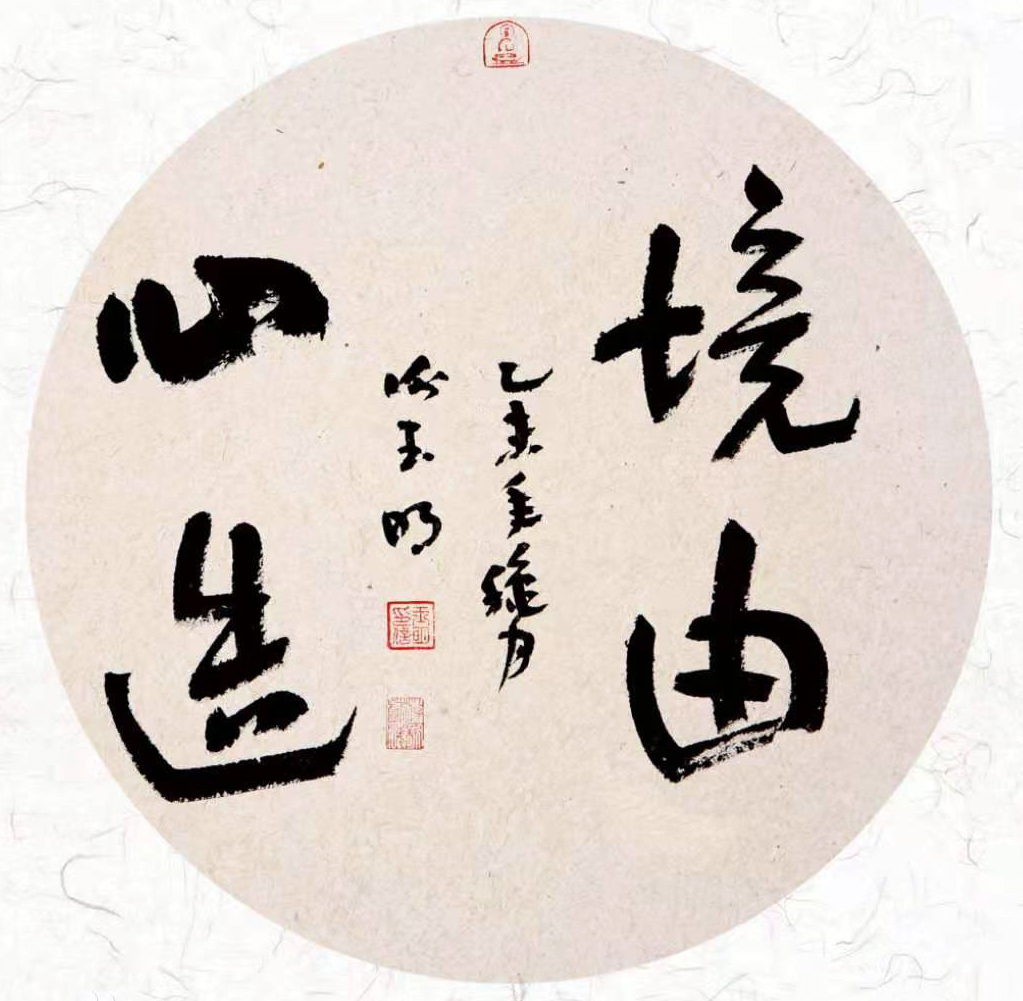 境由
心造
乙未年月
玉明